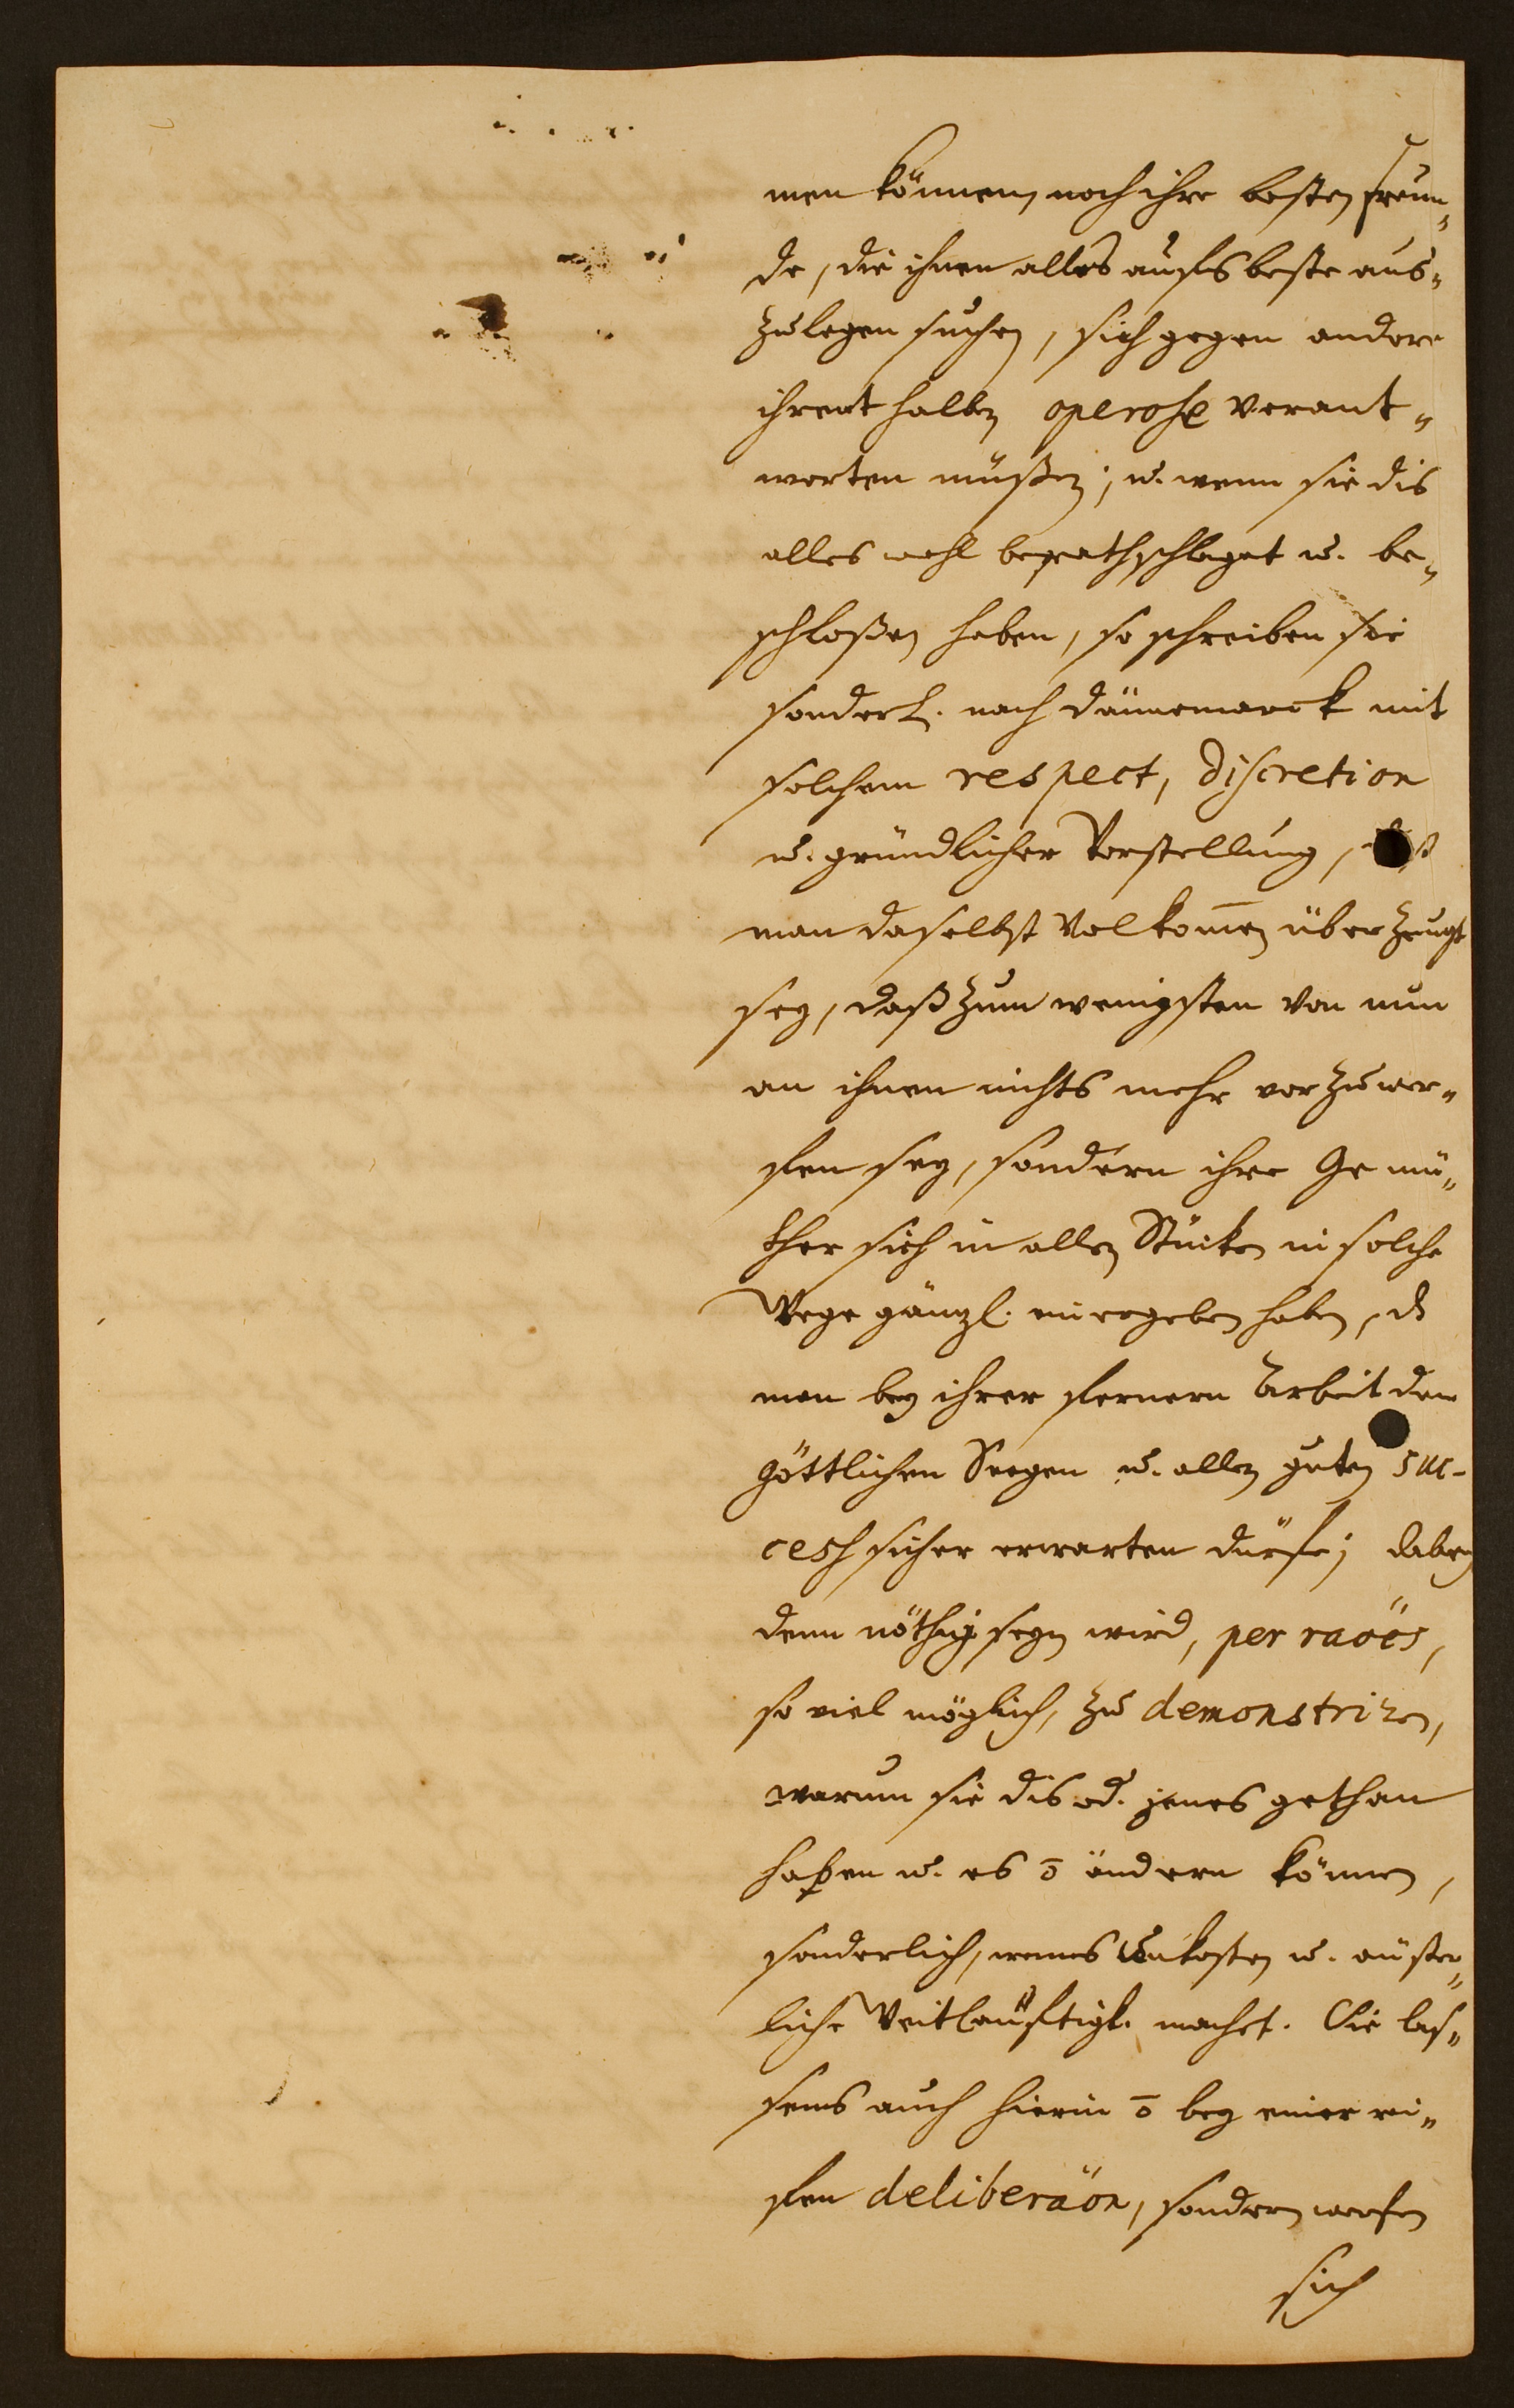 men können, noch ihre besten freun„
de, die ihnen alles aufs beste aus„
zulegen suchen, sich gegen andere
ihrent halben operose verant„
worten müßen; u. wenn sie dis
alles wohl berathschlaget u. be„
schloßen haben, so schreiben sie
sonderl. nach Dännemarck mit
solchem respect, discretion
u. gründlicher Vorstellung,
man daselbst Volkom̄en überzeugt
sey, daß zum wenigsten von nun
an ihnen nichts mehr vorzuwer„
fen sey, sondern ihre Gemü„
ther sich in allen Stücken in solche
Wege gäntzl. einergeben haben, dß
man bey ihrer fernern Arbeit den
göttlichen Seegen u. allen guten suc-
cess sicher erwarten dürfe; dabey
denn nöthig seyn wird, per raöes,
so viel möglich, zu demonstriren,
warum sie dis od. jenes gethan
haben u. es ō ändern können,
sonderlich, wenns Unkosten u. äußer„
liche Weitläuftigk. machet. Sie las„
sens auch hierin ō bey einer rei„
fen deliberäon, sondern werfen
sich